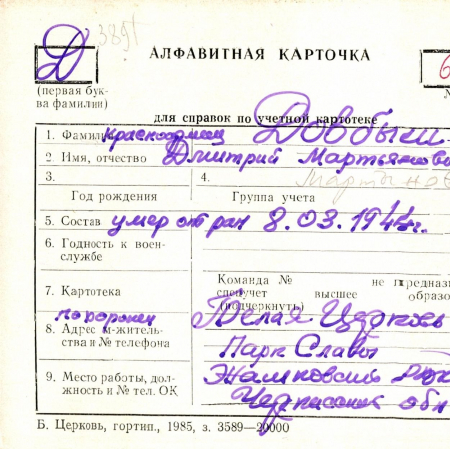 Д 3891
АЛФАВИТНАЯ КАРТОЧКА
6
(первая бук-
ва фамилии)
№
для справок по учетной картотеке
1. Фамилия красноармеец Довбыш
2. Имя, отчество Дмитрий Мартьянови
3. 4. Мартынов
Год рождения Группа учета
5. Состав умер от ран 8.03.1944г.
6. Годность к воен-
службе
Команда № не предназ
7. Картотека спецучет высшее образо
(подчеркнуть)
похоронен Белая Церковь
8. Адрес м-житель-
ства и № телефона Парк Славы
9. Место работы, дол-
жность и № тел. ОК
обл
Б. Церковь, гортип., 1985, з. 3589—20000